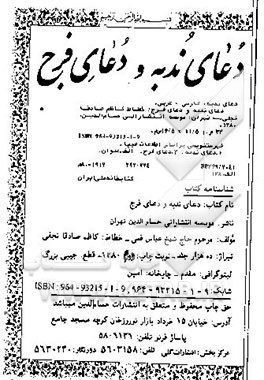 بسم الله الرحمن الرحیم
دُعای نُدبه و دُعای فرج
دعای ندبه. فارسی - عربی.
دعای ندبه و دعای فرج / خطاط کاظم صادقا
نجفی - تهران: موسسه انتشاراتی حسام‌الدین،
۱۳۸۰.
ISBN 964-93215-1-0-9
فهرستنویسی براساس اطلاعات فیپا.
کتابخانه ملی ایران
شناسنامه کتاب
نام کتاب: دعای ندبه و دعای فرج
ناشر: موسسه انتشاراتی حسام الدین تهران
مؤلف: مرحوم حاج شیخ عباس قمی - خطاط: کاظم صادقا نجفی
تیراژ: ده هزار جلد - نوبت چاپ: دوم ۱۳۸۰ - قطع: جیبی بزرگ
لیتوگرافی: مقدم - چاپخانه: امین
شابک: ۹-۱۰-۹۳۲۱۵-۹۶۴ ISBN: 964-93215-1-0-9
حق چاپ محفوظ و متعلق به انتشارات حسام‌الدین میباشد
آدرس: خیابان ۱۵ خرداد بازار نوروزخان کوچه مسجد جامع
پاساژ قرنو تلفن: ۵۸۰۶۱۳۱
مرکز پخش: انتشارات گلی تلفن: ۵۶۰۳۱۵۸ دورنگار: ۵۶۳۰۲۳۰